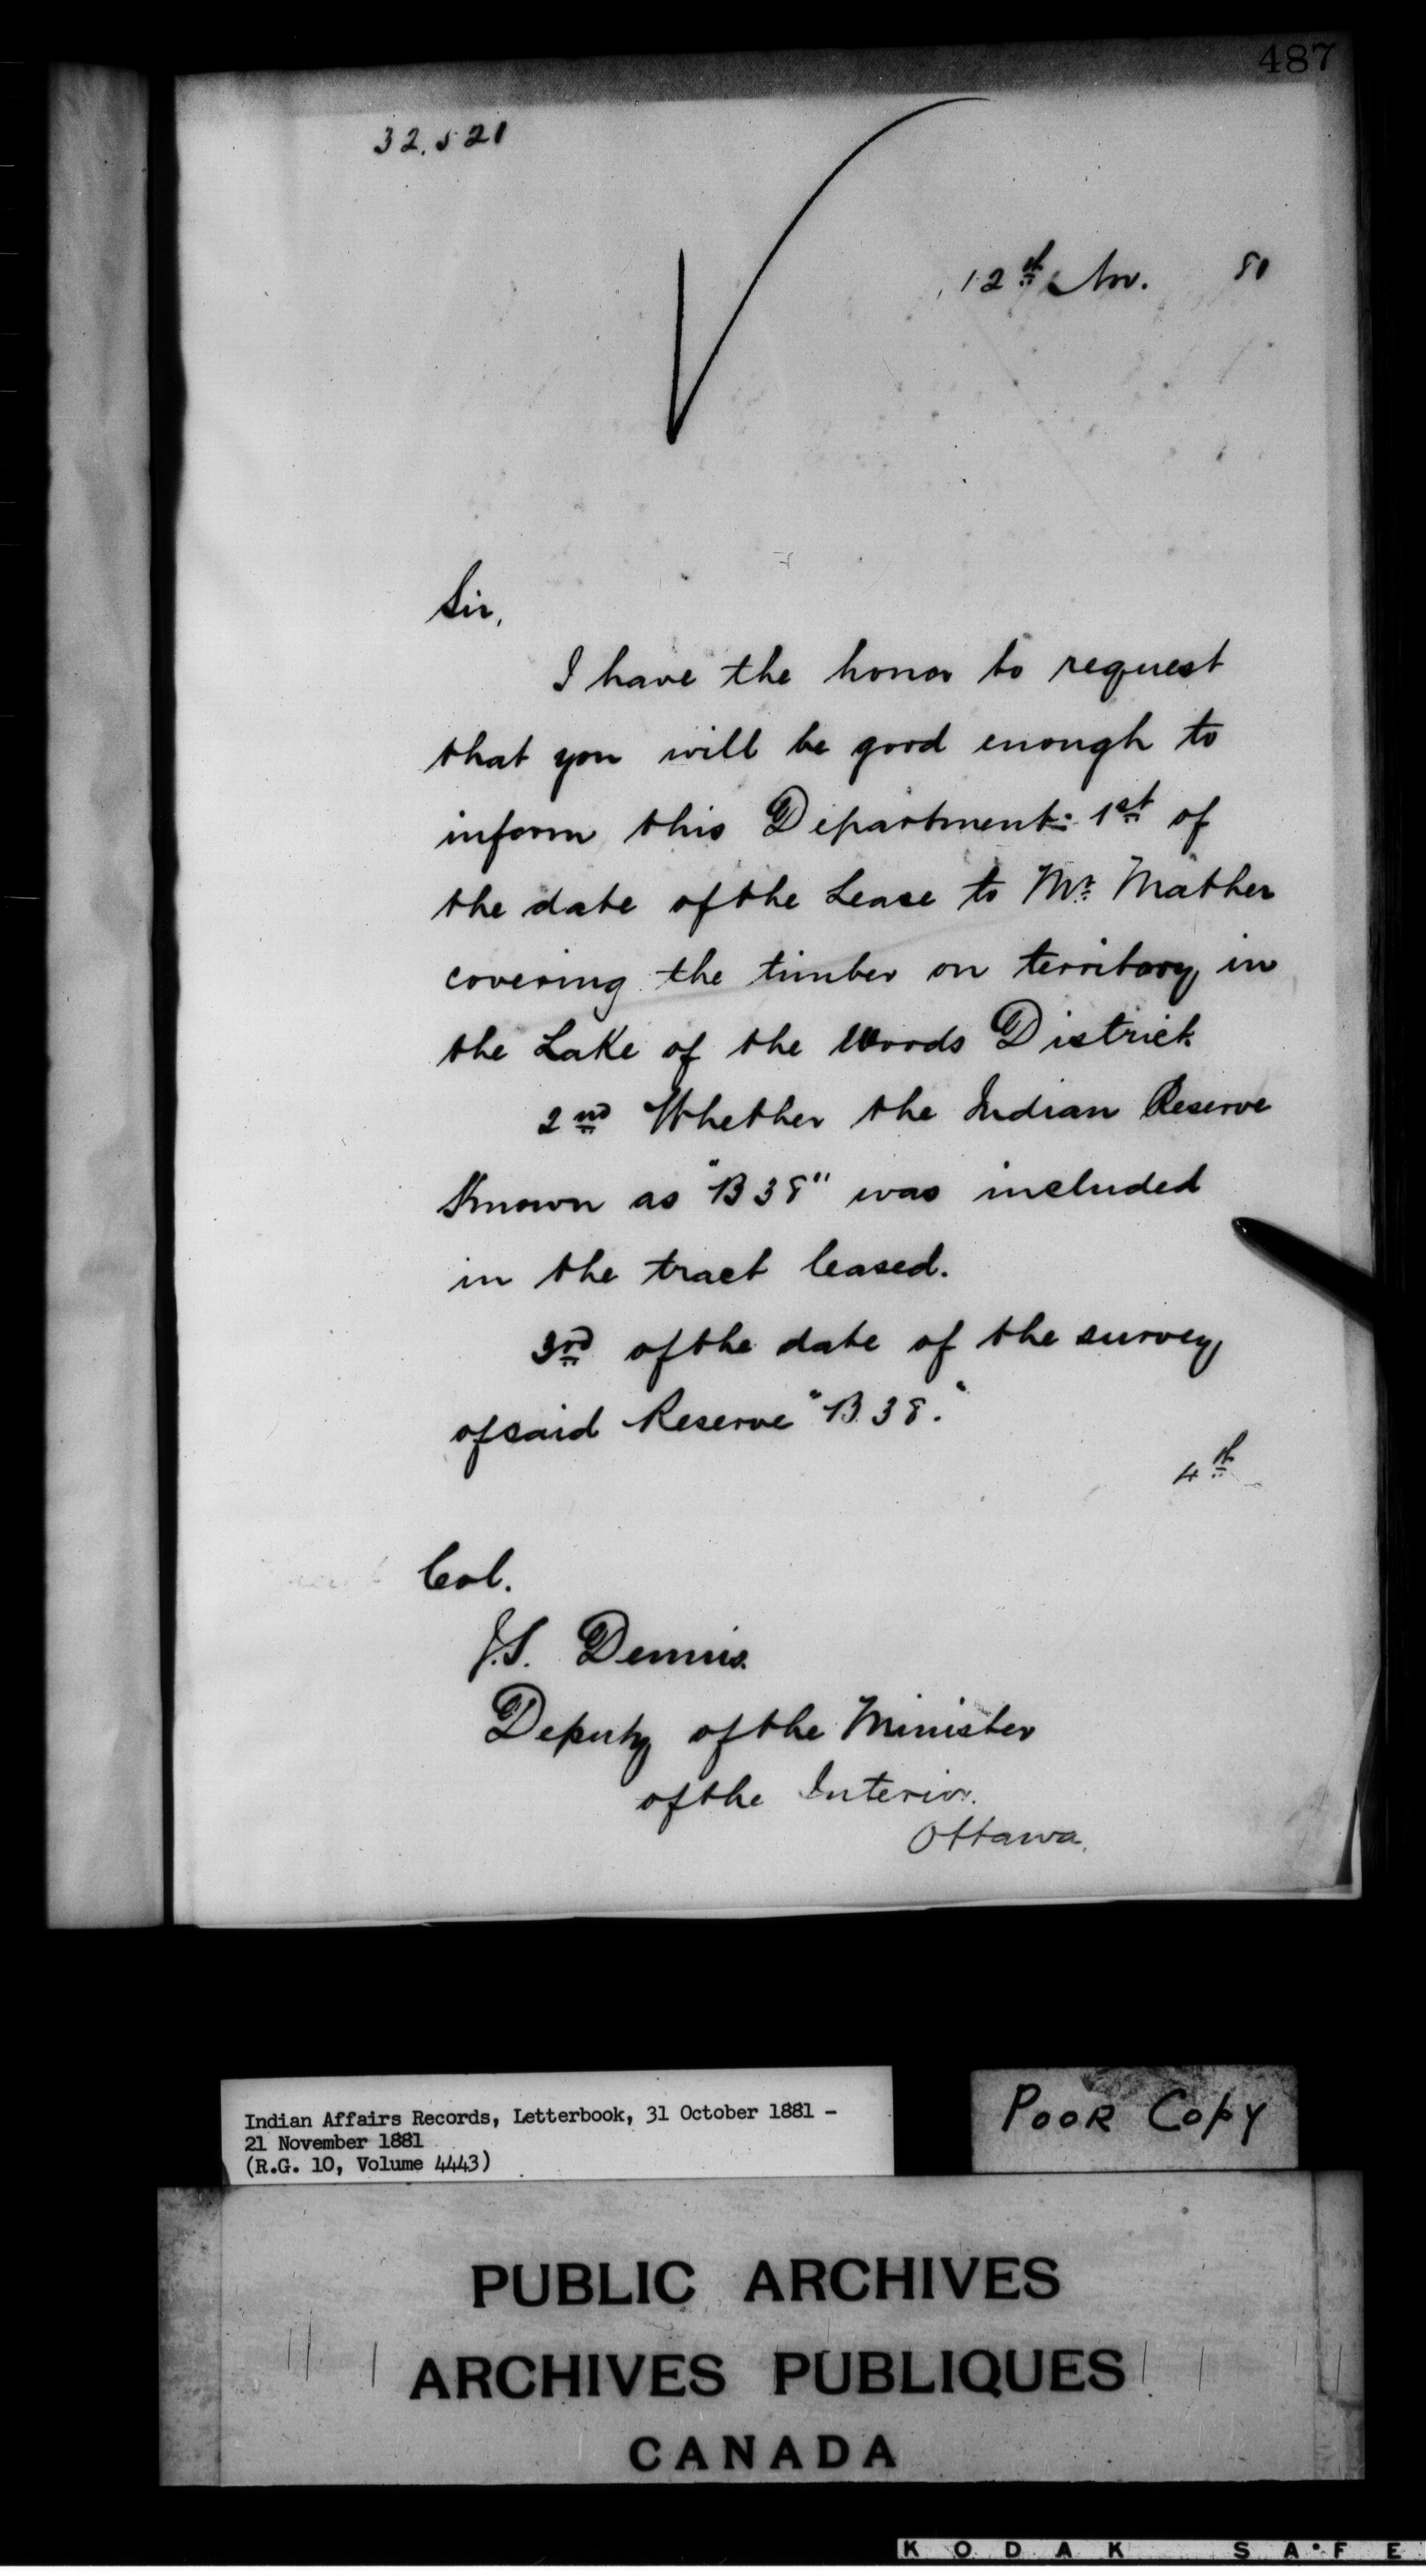 487
32.521
12th Nov. 81
Sir,
I have the honor to request
that you will be good enough to
inform this Department: 1st of
the date of the Lease to Mr. Mather
covering the timber on territory in
the Lake of the Woods District.
2nd Whether the Indian Reserve
Known as "B 38" was included
in the tract leased.
3rd of the date of the survey
of said Reserve "B 38."
4th
Col.
J.S. Dennis.
Deputy of the Minister
of the Interior.
Ottawa.
Indian Affairs Records, Letterbook, 31 October 1881 -
21 November 1881
(R.G. 10, Volume 4443)
POOR COPY
PUBLIC ARCHIVES
ARCHIVES PUBLIQUES
CANADA
KODAK SAFE